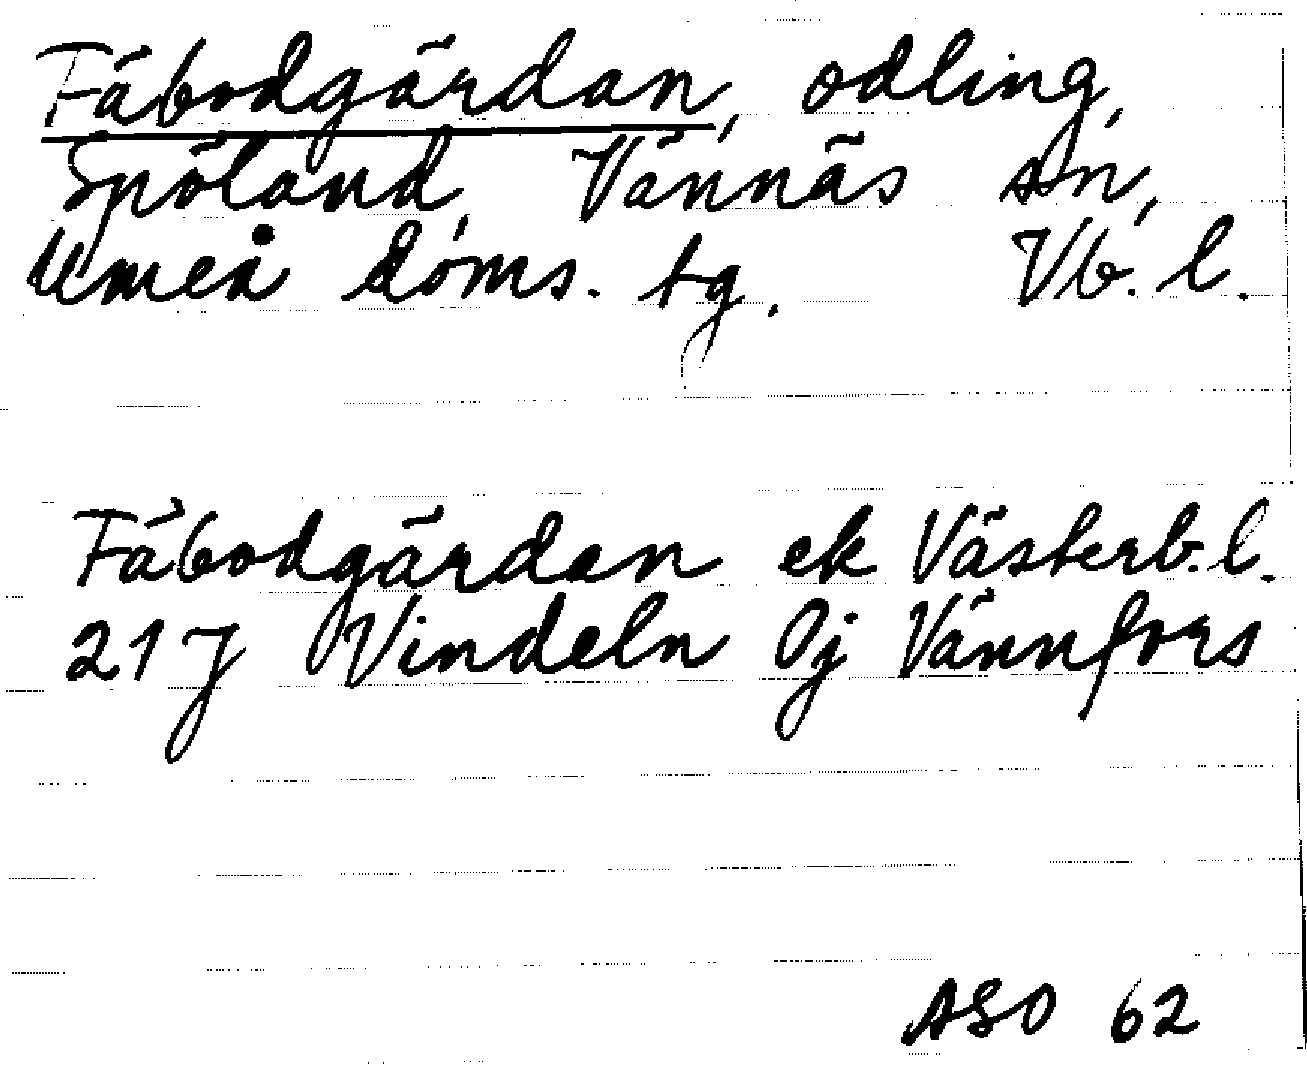 Fäbodgärdan, odling,
Spöland, Vännäs sn,
Umeå doms. tg. Vb. l.
Fäbodgärdan ek Västerb. l.
21 J Vindeln 0j Vännfors
ASO 62